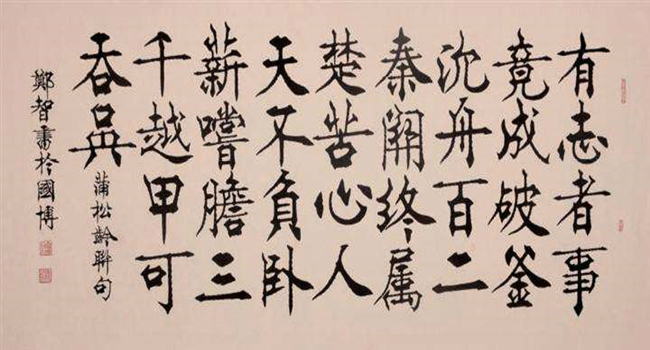 有志者事
竟成破釜
沈舟百二
秦關终属
楚苦心人
天不負卧
薪嚐膽三
千越甲可
吞吳
蒲松齡聯句
鄭智書於國博